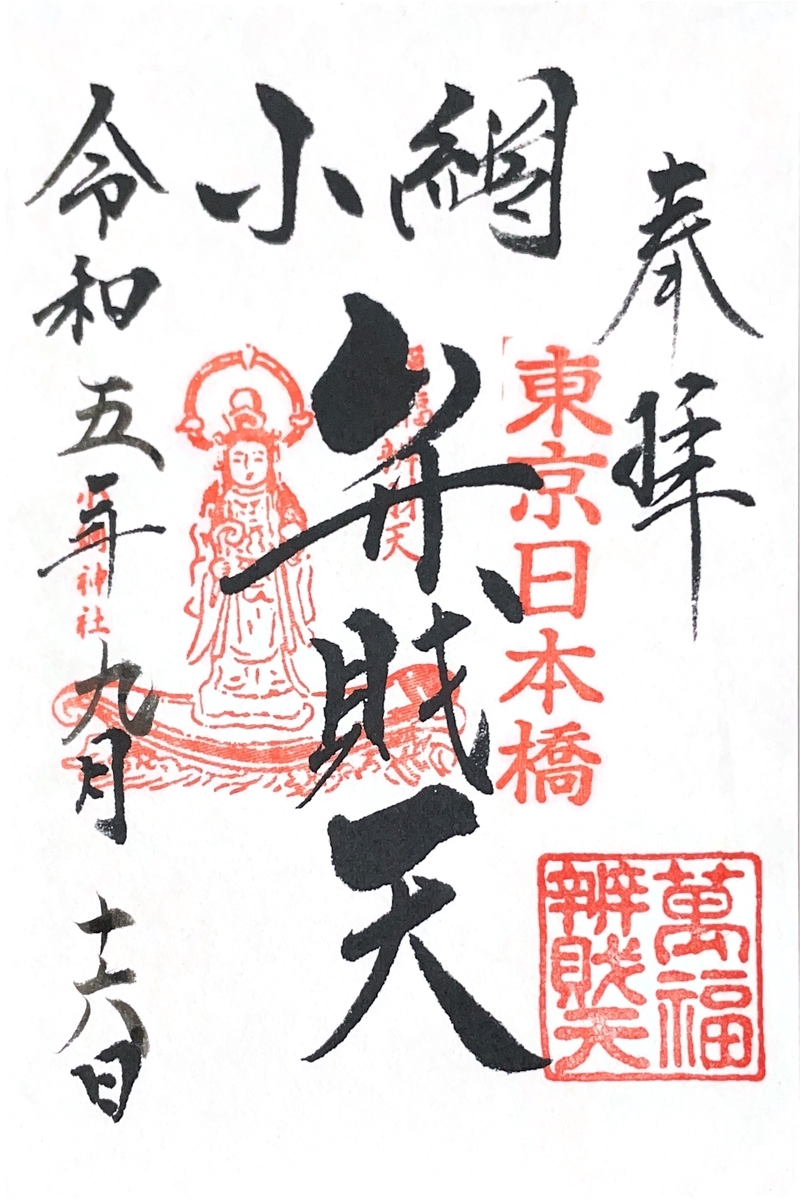 奉拝
東京日本橋
萬福
辨財天
小網
弁財天
小網神社
令和五年九月十六日